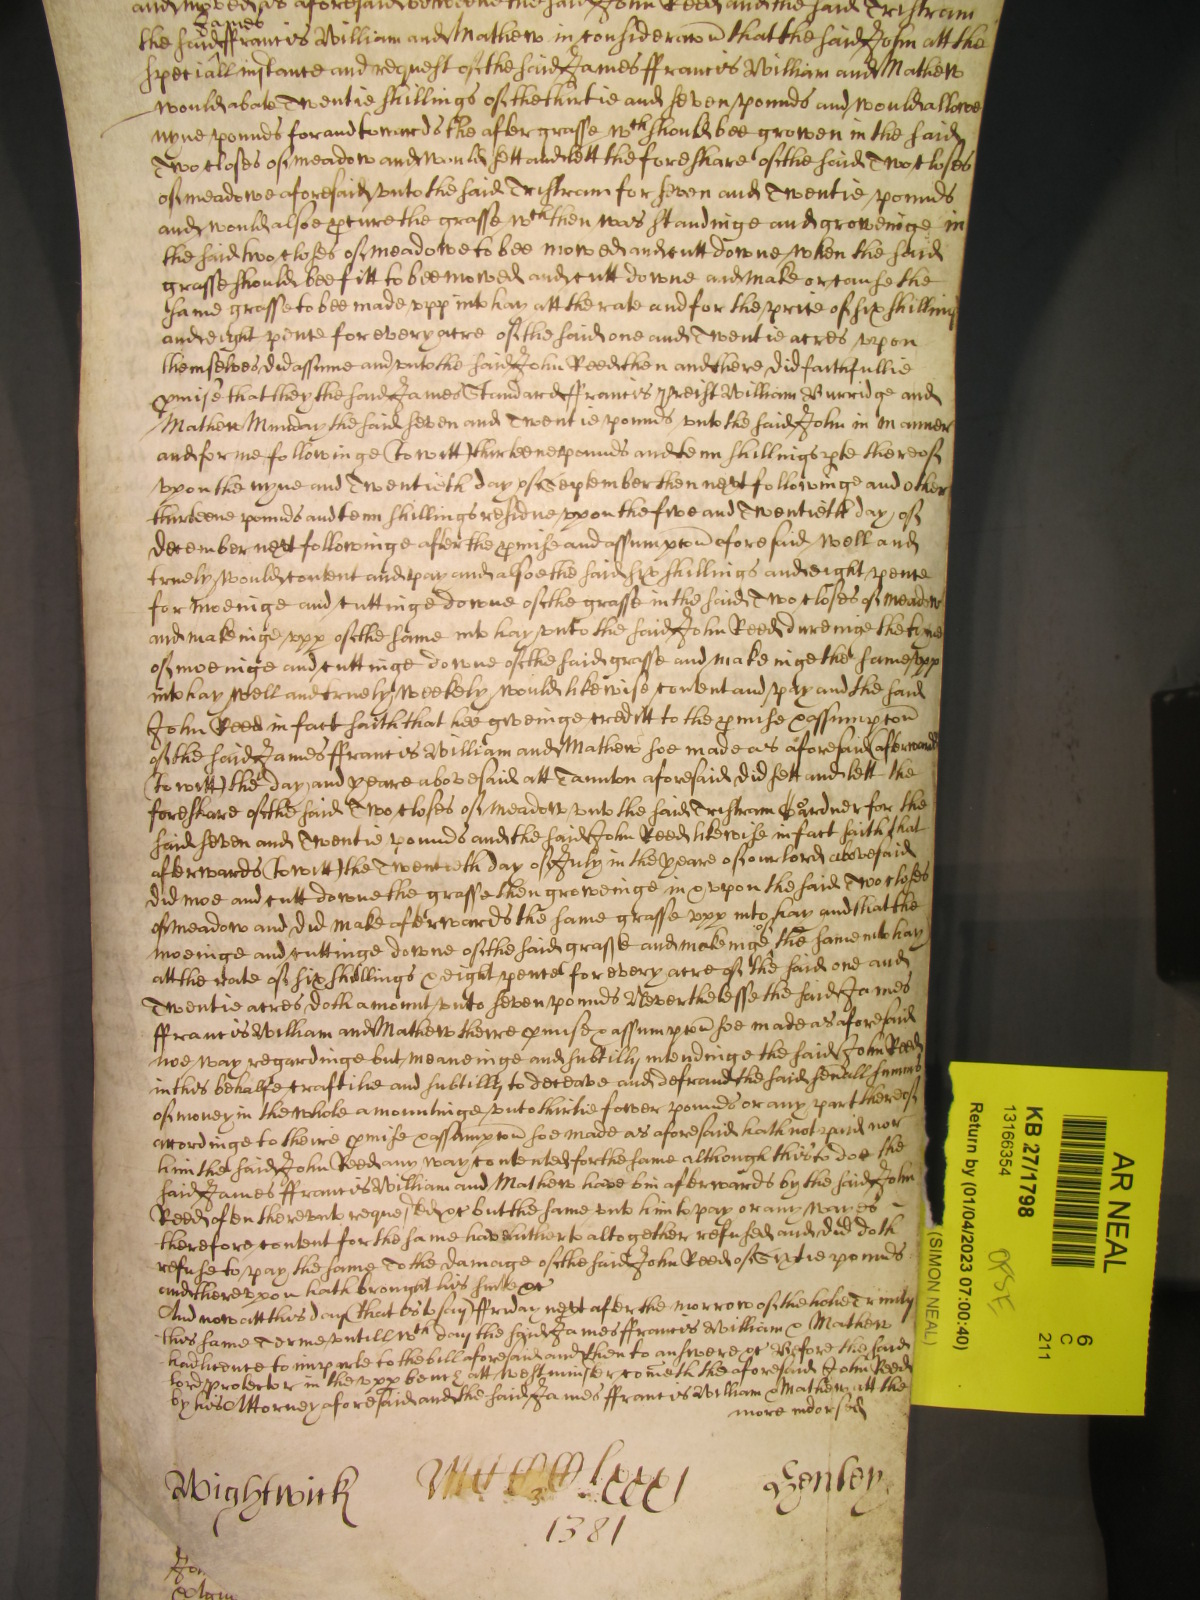 and moved as aforesaid betweene the said John Reed and the said Tristram
James
the said ffrancis William and Mathew in consideracon that the said John att the
speciall instance and request of the said James ffrancis William and Mathew
would abate Twentie shillings of the thirtie and seven pounds and would allowe
nyne pounds for and towards the after grasse wch should bee growen in the said
Two closes of meadow and would sett and lett the foreshare of the said Two closes
of meadowe aforesaid unto the said Tristram for seven and Twentie pounds
and would alsoe pcure the grasse wch then was standinge and groweinge in
the said two closes of meadowe to bee mowed and cutt downe when the said
grasse should bee fitt to bee mowed and cutt downe and make or cause the
same grasse to bee made upp into hay att the rate and for the price of six shillings
and eight pence for every acre of the said one and Twentie acres upon
themselves did assume and unto the said John Reed then and there did faithfullie
pmise that they the said James Standard ffrancis William Burridge and
Mathew Munday the said seven and Twentie pounds unto the said John in manner
and forme followinge (to witt) thirteene pounds and tenn shillings pte thereof
upon the nyne and Twentieth day of September then next followinge and other
thirteene pounds and tenn shillings residue upon the five and Twentieth day of
December next followinge after the pmise and assumpcon aforesaid well and
truely would content and pay and alsoe the said six shillings and eight pence
for moeinge and cuttinge downe of the grasse in the said Two closes of meadow
and makeinge upp of the same into hay unto the said John Reed dureinge the tyme
of moeinge and cuttinge downe of the said grasse and makeinge the same upp
into hay well and truely weekely would likewise content and pay and the said
John Reed in fact saith that hee giveinge creditt to the pmise & assumpcon
of the said James ffrancis William and Mathew soe made as aforesaid afterwards
(to witt) the day and yeare abovesaid att Taunton aforesaid did sett and lett the
foreshare of the said Two closes of meadow unto the said Tristram Gardner for the
said seven and Twentie pounds and the said John Reed likewise in fact saith that
afterwards (to witt) the Twentieth day of July in the yeare of our lord abovesaid
did moe and cutt downe the grasse then groweinge in & upon the said Two closes
of meadow and did make afterwards the same grasse upp into hay and that the
moeinge and cuttinge downe of the said grasse and makeinge of the same into hay
att the rate of six shillings & eight pence for every acre of the said one and
Twentie acres doth amount unto seven pounds Neverthelesse the said James
ffrancis William and Mathew theire pmise & assumpcon soe made as aforesaid
noe way regardinge but meaneinge and subtilly intendinge the said John Reed
in this behalfe craftilie and subtilly to deceave and defraud the said sevall summs
of money in the whole amountinge unto thirtie fower pounds or any part thereof
accordinge to theire pmise & assumpcon soe made as aforesaid hath not paid nor
him the said John Reed any way contented for the same although this to doe the
said James ffrancis William and Mathew have bin afterwards by the said John
Reed often thereunto requested &c but the same unto him to pay or any wayes
therefore content for the same have hitherto altogether refused and did doth
refuse to pay the same To the damage of the said John Reed of Sixtie pounds
and thereupon hath brought his suite &c
And now att this day (that is to say) ffriday next after the morrow of the holie Trinity
this same Terme untill wch day the said James ffrancis William & Mathew
had licence to imparle to the bill aforesaid and then to answere &c Before the said
lord protector in the upp bench att westminster cometh the aforesaid John Reed
by his Attorney aforesaid and the said James ffrancis William & Mathew att the
more indorsed
Wightwick
Henley
1381
AR NEAL
6
C
211
KB 27/1798
13166354
Return by (01/04/2023 07:00:40)
(SIMON NEAL)